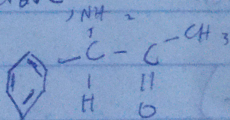 NH 2
C - C - CH3
H O